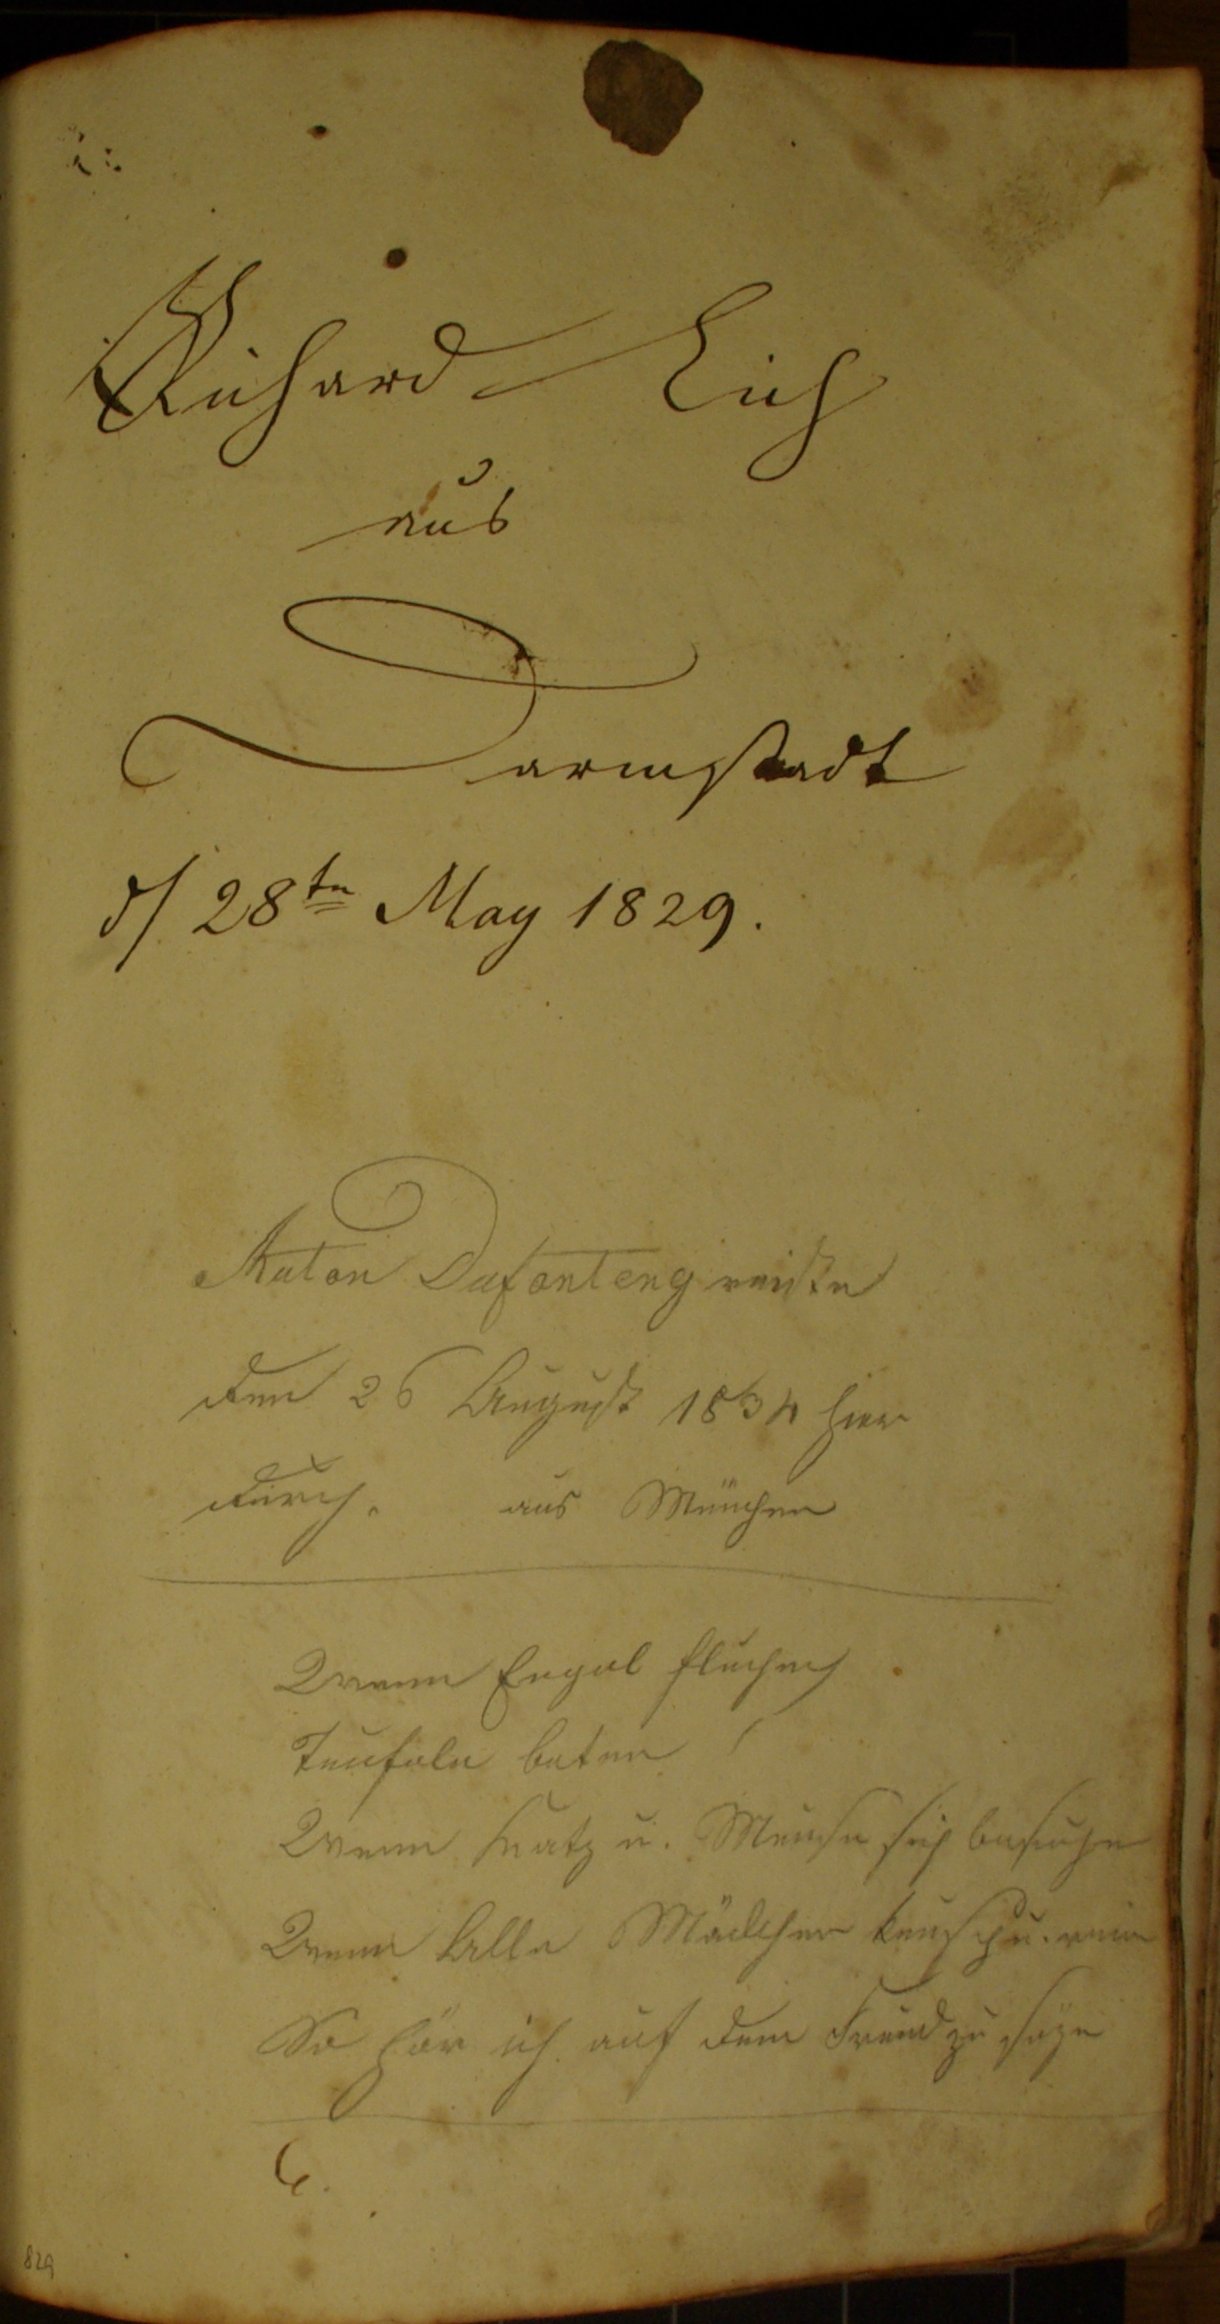 Richard Eich
aus
Darmstadt
d/ 28ten May 1829.
Anton Dafonteng reiste
den 26 August 1834 hier
durch. aus München
Wenn Engel fluchen
Teufeln beten
Wenn Katz u. Meuse sich besuchen
Wenn Alle Mädchen keusch u. rein
So hör ich auf dein Freund zu
829